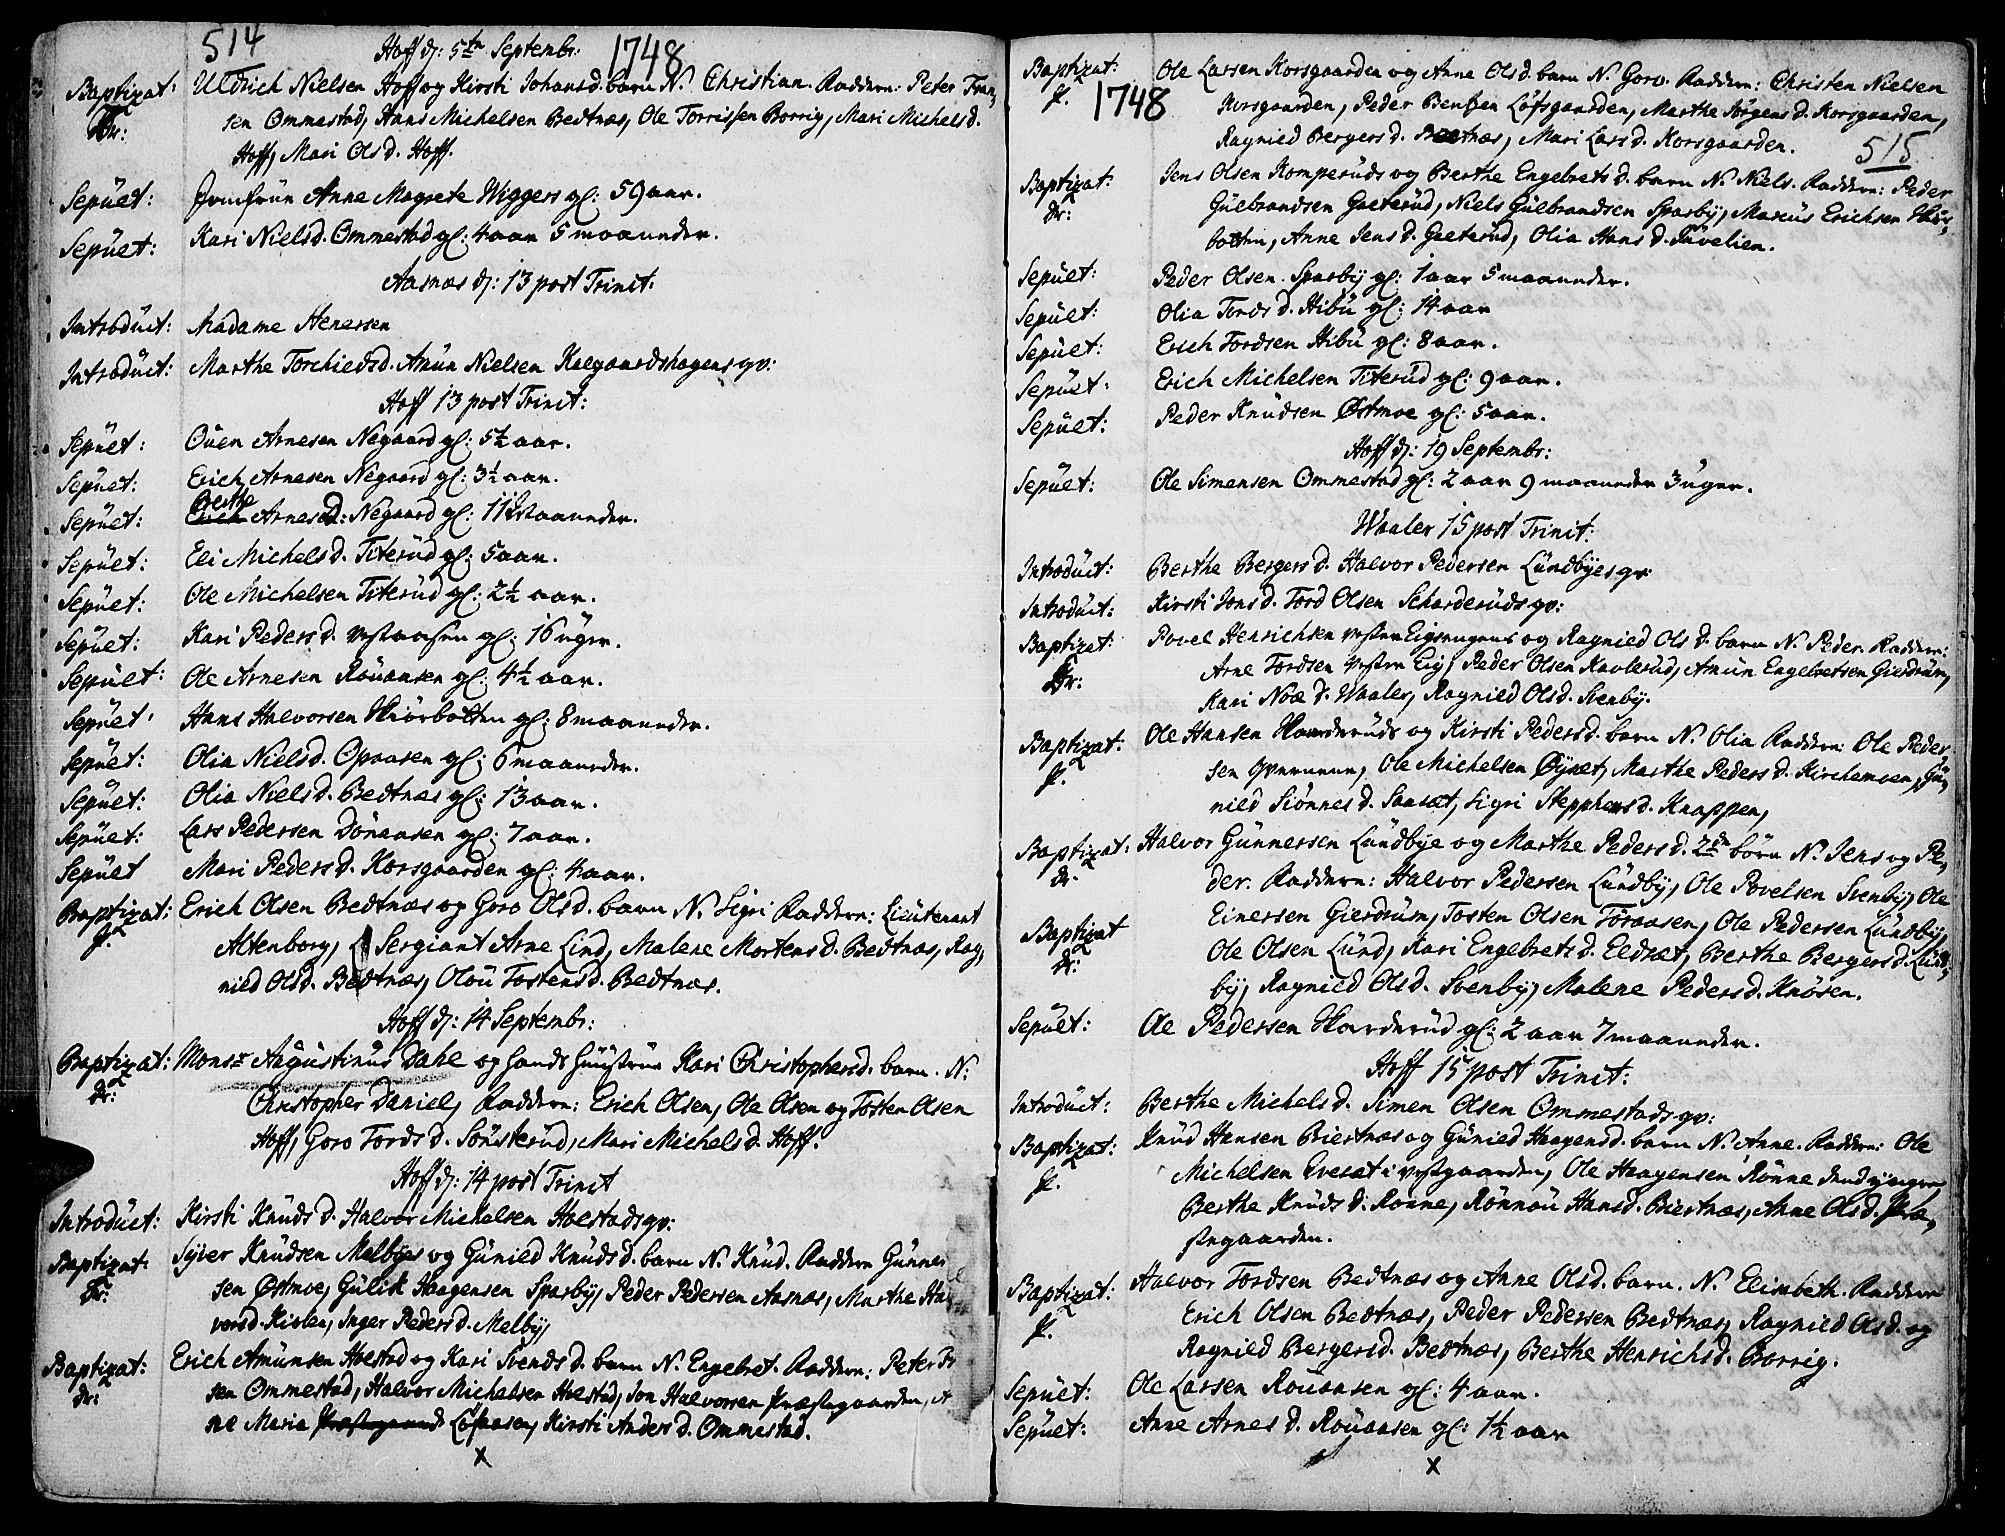 514
Hoff d: 5te Septembr: 1748
Baptizat: Uldrich Nielsen Hoff og Kirsti Johansd. barn N. Christian. Faddern: Peter Fran,
dr: sen Ommestad, Hans Michelsen Bedtnæs, Ole Torrissen Borrig, Mari Michelsd.
Hoff, Mari Olsd. Hoff.
Sepult: Jomfrue Anne Magrete Wiggers gl: 59 aar.
Sepult: Kari Nielsd. Ommestad gl: 4 aar 5 maaneder.
Aasnæs d: 13 post Trinit:
Introduct: Madame Henersen
Introduct: Marthe Torchieldsd. Amun Nielsen Kolgaardshagens qv:
Hoff 13 post Trinit:
Sepult: Ouen Arnesen Negaard gl: 5½ aar.
Sepult: Erich Arnesen Negaard gl: 3½ aar.
Berthe
Sepult: Erich Arnesd: Negaard gl: 11 maaneder.
Sepult: Eli Michelsd. Titerud gl: 5 aar.
Sepult: Ole Michelsen Titerud gl: 2½ aar.
Sepult: Kari Pedersd. gl: 16 uger.
Sepult: Ole Arnesen Rouaasen gl: 4½ aar.
Sepult: Hans Halvorsen Skiørbotten gl: 8 maaneder.
Sepult: Olia Nielsd. Opaasen gl: 6 maaneder.
Sepult: Olia Nielsd. Bedtnæs gl: 13 aar.
Sepult: Lars Pedersen Dønaasen gl: 7 aar.
Sepult Mari Pedersd. Korsgaarden gl: 4 aar.
Baptizat: Erich Olsen Bedtnæs og Goro Olsd. barn N. Sigri Faddern: Lieutenant
f. Altenborg, Sergiant Arne Lind, Malene Mortensd. Bedtnæs, Rag,
nild Olsd. Bedtnæs, Olou Tostensd. Bedtnæs.
Hoff d: 14 Septembr:
Baptizat: Monsr Augustinus Dahl og hands hustrue Kari Christophersd. barn N:
dr: Christopher Daniel, Faddern: Erich Olsen, Ole Olsen og Tosten Olsen
Hoff, Goro Tordsd. Sønsterud, Mari Michelsd. Hoff.
Hoff d: 14 post Trinit
Introduct: Kirsti Knudsd. Halvor Michelsen Holstads qv:
Baptizat: Syver Knudsen Melbyes og Gunild Knudsd. barn N. Knud. Faddern Gunner
dr: sen Østmoe, Gulik Haagensen Sparby, Peder Pedersen Aasnæs, Marthe Hal
vorsd. Kislen, Inger Pedersd. Melby,
Baptizat: Erich Amunsen Holstad og Kari Svendsd. barn N. Engebret. Faddern: Peter Fr
dr: sen Ommestad, Halvor Michelsen Holstad, Jon Halvorsen Præstegaarden, A
ne Maria Præstegaard Løfaasen, Kirsti Andersd. Ommestad.
x
Baptizat: Ole Larsen Korsgaarden og Anne Olsd. barn N. Goro. Faddern: Christen Nielsen
f. 1748 Korsgaarden, Peder Bentsen Løfsgaarden, Marthe Jørgensd. Korsgaarden,
Ragnild Bergersd. Bedtnæs, Mari Larsd. Korsgaarden. 515
Baptizat: Jens Olsen Komperuds og Berthe Engebretsd. barn N. Niels. Faddern: Peder
dr: Gulbrandsen Gaeterud, Niels Gulbrandsen Sparby, Marcus Erichsen
botten, Anne Jensd. Gaeterud, Olia Hansd. Juvelien.
Sepult: Peder Olsen Sparby gl: 1 aar 5 maaneder.
Sepult: Olia Tordsd. Hibu gl: 14 aar
Sepult: Erich Tordsen Hibu gl: 8 aar.
Sepult: Erich Michelsen Titerud gl: 9 aar.
Sepult: Peder Knudsen Østmoe gl: 5 aar.
Hoff d: 19 Septembr:
Sepult: Ole Simensen Ommestad gl: 2 aar 9 maaneder 3 uger.
Waaler 15 post Trinit:
Introduct: Berthe Bergersd. Halvor Pedersen Lundbyes qv:
Introduct: Kirsti Jonsd. Tord Olsen Scharderuds qv:
Baptizat: Povel Henrichsen og Ragnild Olsd. barn N. Peder. Faddern:
dr: Arne Tordsen Peder Olsen Kavlerud, Amun Engebretsen Gierdrum,
Kari Noæd. Waaler, Ragnild Olsd. Svenby.
Baptizat: Ole Hansen Skarderuds og Kirsti Pedersd. barn N. Olia Faddern: Ole Peder
f. sen Ole Michelsen Øyset, Marthe Pedersd. Kirchemoen, Gu,
nild Siønnesd. Saasæt, Sigri Stephensd. Knappen,
Baptizat: Halvor Gunnersen Lundbye og Marthe Pedersd. 2de børn N. Jens og Pe,
dr. der. Faddern: Halvor Pedersen Lundby, Ole Povelsen Svenby, Ole
Baptizat Einersen Gierdrum, Tosten Olsen Toraasen, Ole Pedersen Lundby,
dr: Ole Olsen Lund, Kari Engebretsd. Eldset, Berthe Bergersd. Lund,
by, Ragnild Olsd. Svenby, Malene Pedersd. Knøsen.
Sepult: Ole Pedersen Skarderud gl: 2 aar 7 maaneder.
Hoff 15 post Trinit:
Introduct: Berthe Michelsd. Simen Olsen Ommestads qv:
Baptizat: Knud Hansen Biertnæs og Gunild Haagensd. barn N. Anne. Faddern: Ole
f. Michelsen Evesæt i vestgaarden, Ole Haagensen Rønne den yngre,
Berthe Knudsd. Rønne, Rønnou Hansd. Biertnæs, Anne Olsd. Præ,
stegaarden.
Baptizat: Halvor Tordsen Bedtnæs og Anne Olsd. barn. N. Elisabeth. Faddern
f. Erich Olsen Bedtnæs, Peder Pedersen Bedtnæs, Ragnild Olsd. og
Ragnild Bergersd. Bedtnæs, Berthe Henrichsd. Borrig.
Sepult: Ole Larsen Rouaasen gl: 4 aar.
Sepult: Anne Arnesd. Rouaasen gl: 1½ aar
x